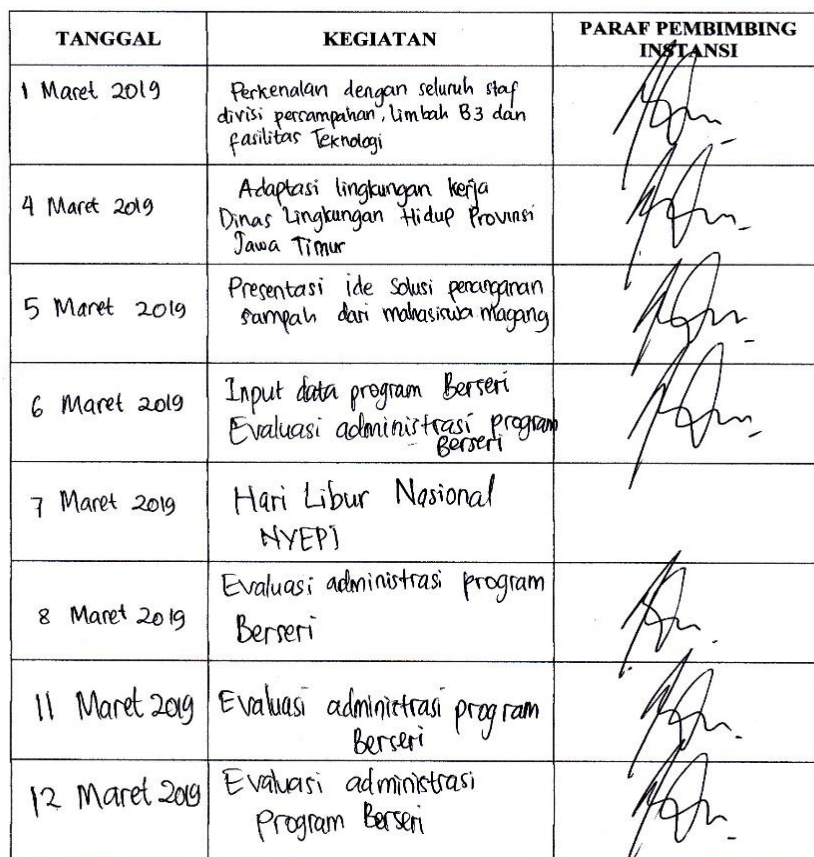 TANGGAL
KEGIATAN
PARAF PEMBIMBING
INSTANSI
1 Maret 2019
Perkenalan dengan seluruh staf
divisi persampahan, Limbah B3 dan
fasilitas Teknologi
4 Maret 2019
Adaptasi lingkungan kerja
Dinas Lingkungan Hidup Provinsi
Jawa Timur
5 Maret 2019
Presentasi ide solusi penanganan
sampah dari mahasiswa magang
6 Maret 2019
Input data program Berseri
Evaluasi administrasi program
Berseri
7 Maret 2019
Hari Libur Nasional
NYEPI
8 Maret 2019
Evaluasi administrasi program
Berseri
11 Maret 2019
Evaluasi administrasi program
Berseri
12 Maret 2019
Evaluasi administrasi
program Berseri